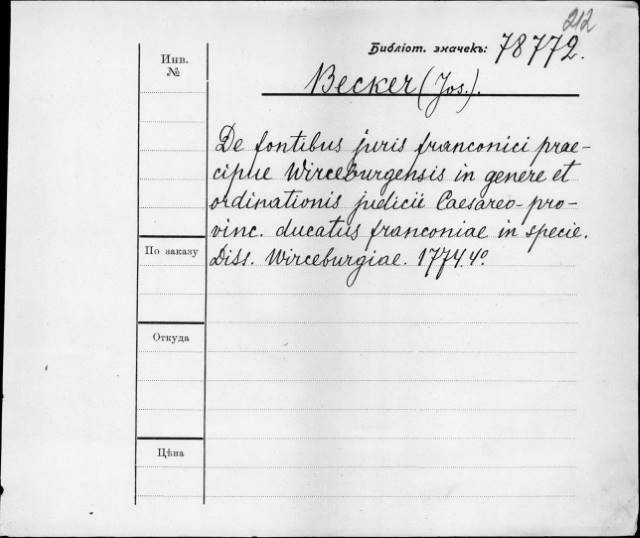 212
Библіот. значекъ: 78772.
Инв.
№
Becker (Jos.).
De fontibus juris franconici prae-
cipue Wirceburgensis in genere et
ordinationis judicii Caesareo-pro-
vinc. ducatus franconiae in specie.
Diss. Wirceburgiae. 1774. 4º.
По заказу
Откуда
Цѣна